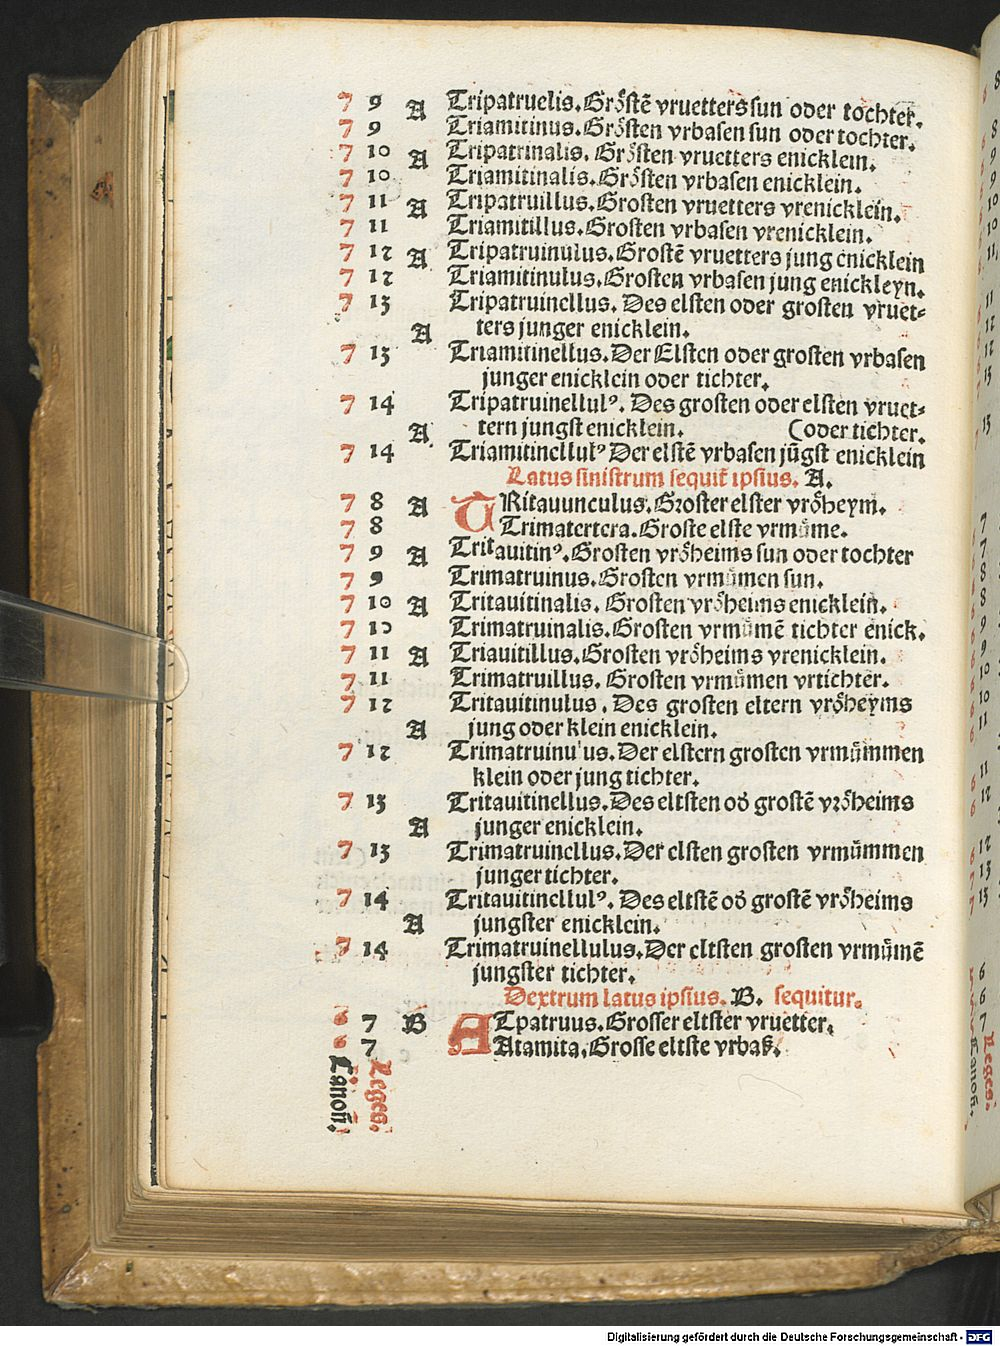 7 9 A Tripatruelis. Gröstē vruetters sun oder tochter.
7 9 Triamitinus. Grösten vrbasen sun oder tochter.
7 10 A Tripatrinalis. Grösten vruetters enicklein.
7 10 Triamitinalis. Grösten vrbasen enicklein.
7 11 A Tripatruillus. Grosten vruetters vrenicklein.
7 11 Triamitillus. Grosten vrbasen vrenicklein.
7 12 A Tripatruinulus. Grostē vruetters jung enicklein
7 12 Triamitinulus. Grosten vrbasen jung enickleyn.
7 13 Tripatruinellus. Des elsten oder grosten vruet⸗
A ters junger enicklein.
7 13 Triamitinellus. Der Elsten oder grosten vrbasen
junger enicklein oder tichter.
7 14 Tripatruinellulꝰ. Des grosten oder elsten vruet⸗
A tern jungst enicklein. (oder tichter.
7 14 Triamitinellulꝰ Der elstē vrbasen jūgst enicklein
Latus sinistrum sequit̄ ipsius. A.
7 8 A TRitauunculus. Groster elster vröheym.
7 8 Trimatertera. Groste elste vrmůme.
7 9 A Tritauitinꝰ. Grosten vröheims sun oder tochter
7 9 Trimatruinus. Grosten vrmůmen sun.
7 10 A Tritauitinalis. Grosten vröheims enicklein.
7 10 Trimatruinalis. Grosten vrmůmē tichter enick.
7 11 A Triauitillus. Grosten vröheims vrenicklein.
7 11 Trimatruillus. Grosten vrmůmen vrtichter.
7 12 Tritauitinulus. Des grosten eltern vröheyms
A jung oder klein enicklein.
7 12 Trimatruinu'us. Der elstern grosten vrmümmen
klein oder jung tichter.
7 13 Tritauitinellus. Des eltsten oď grostē vröheims
A junger enicklein.
7 13 Trimatruinellus. Der elsten grosten vrmümmen
junger tichter.
7 14 Tritauitinellulꝰ. Des eltstē oď grostē vröheims
A jungster enicklein.
7 14 Trimatruinellulus. Der eltsten grosten vrmümē
jungster tichter.
Dextrum latus ipsius. B. sequitur.
6 7 B ATpatruus. Grosser eltster vruetter.
6 7 Atamita. Grosse eltste vrbaß.
Canoñ.
Leges.
Digitalisierung gefördert durch die Deutsche Forschungsgemeinschaft - DFG